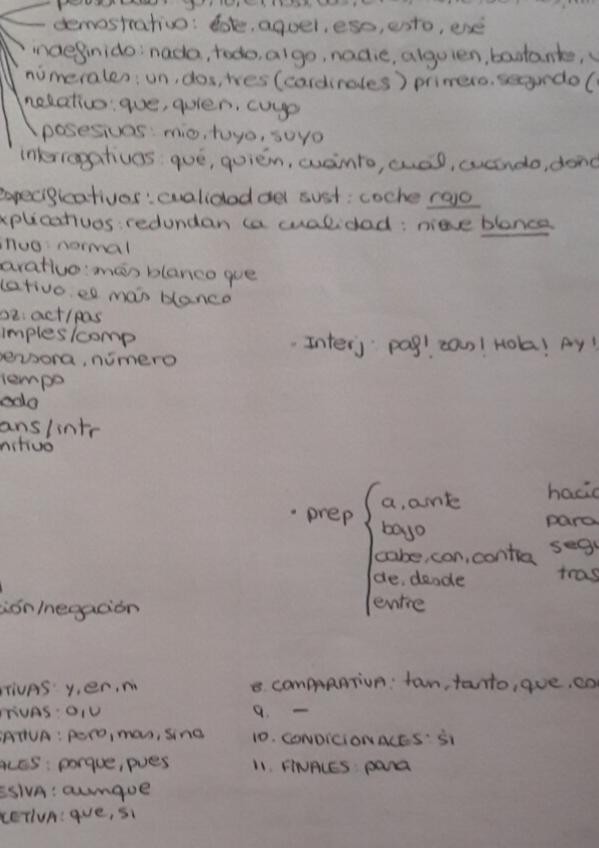 demostrativo: éste, aquel, eso, esto, esé
indefinido: nada, todo, algo, nadie, alguien, bastante,
númerales: un, dos, tres (cardinales) primero, segundo (
relativo: que, quien, cuyo
posesivos: mio, tuyo, suyo
interrogativos: qué, quién, cuánto, cuál, cuándo, dond
especificativos: cualidad del sust: coche rojo
xplicativos: redundan la cualidad: nieve blanca
itivo: normal
arativo: más blanco que
lativo: el más blanco
oz: act/pas
imples/comp
persona, número
iempo
odo
ans/intr
nitivo
· Interj: paf! zas! Hola! Ay!
· prep { a, ante
bajo
cabe, con, contra
de, desde
entre
hacia
para
segú
tras
ción/negación
TIVAS: y, en, ni
TIVAS: o, u
SATIVA: pero, mas, sino
ALES: porque, pues
ESIVA: aunque
LETIVA: que, si
8. COMPARATIVA: tan, tanto, que, co
9. —
10. CONDICIONALES: si
11. FINALES: para